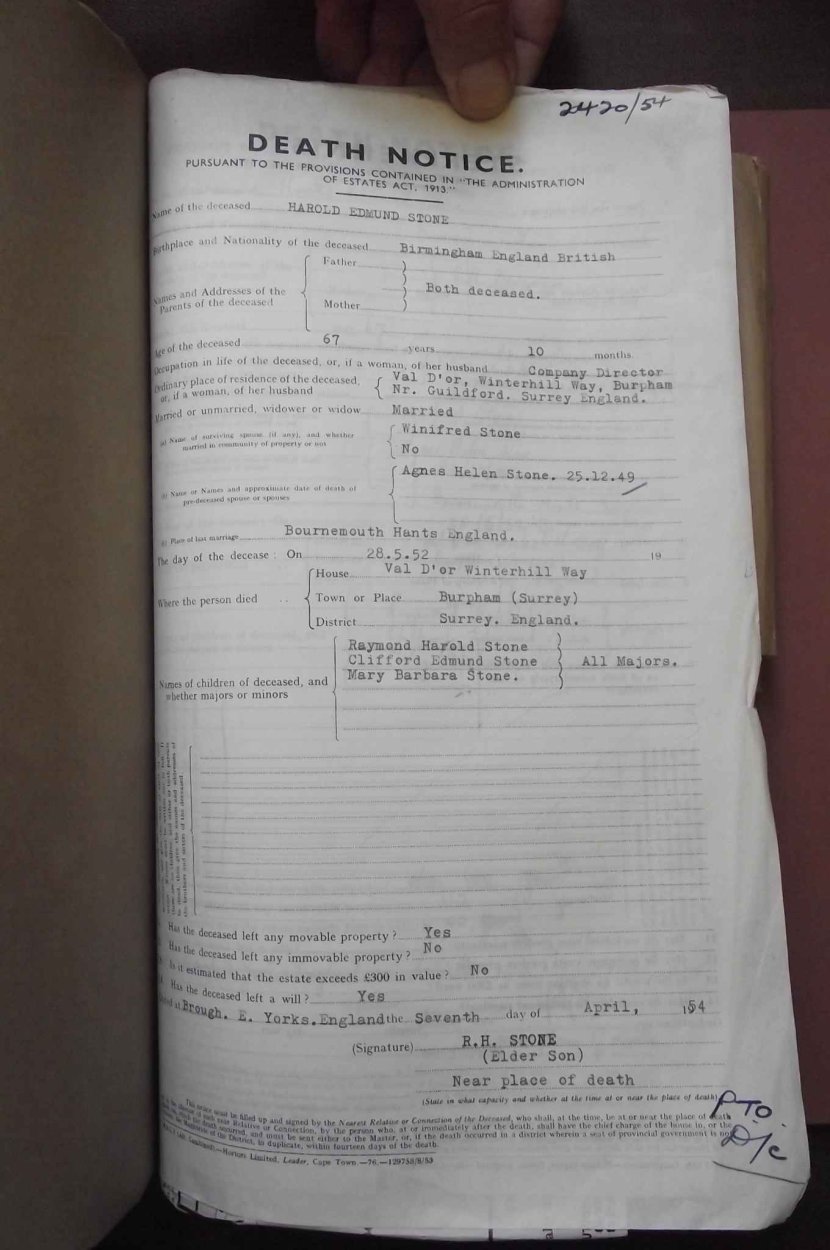 2420/54
DEATH NOTICE.
PURSUANT TO THE PROVISIONS CONTAINED IN "THE ADMINISTRATION
OF ESTATES ACT, 1913."
Name of the deceased HAROLD EDMUND STONE
Birthplace and Nationality of the deceased Birmingham England British
Names and Addresses of the
Parents of the deceased
Father
Mother
Both deceased.
Age of the deceased 67 years 10 months.
Occupation in life of the deceased, or, if a woman, of her husband Company Director
Ordinary place of residence of the deceased,
or, if a woman, of her husband
Val D'or, Winterhill Way, Burpham
Nr. Guildford. Surrey England.
Married or unmarried, widower or widow Married
(a) Name of surviving spouse (if any), and whether
married in community of property or not
Winifred Stone
No
(b) Name or Names and approximate date of death of
pre-deceased spouse or spouses
Agnes Helen Stone. 25.12.49
(c) Place of last marriage Bournemouth Hants England.
The day of the decease : On 28.5.52 19
Where the person died
House Val D'or Winterhill Way
Town or Place Burpham (Surrey)
District Surrey. England.
Names of children of deceased, and
whether majors or minors
Raymond Harold Stone
Clifford Edmund Stone
Mary Barbara Stone.
All Majors.
the brothers and sisters of the deceased.
Has the deceased left any movable property ? Yes
Has the deceased left any immovable property ? No
Is it estimated that the estate exceeds £300 in value ? No
Has the deceased left a will ? Yes
Dated at Brough. E. Yorks. England the Seventh day of April, 1954
(Signature) R.H. STONE
(Elder Son)
Near place of death
(State in what capacity and whether at the time at or near the place of death)
This notice must be filled up and signed by the Nearest Relative or Connection of the Deceased, who shall, at the time, be at or near the place of death
Relative or Connection, by the person who, at or immediately after the death, shall have the chief charge of the house in, or the
death occurred, and must be sent either to the Master, or, if the death occurred in a district wherein a seat of provincial government is not
of the District, in duplicate, within fourteen days of the death.
Hortors Limited, Leader, Cape Town.—76.—129758/8/53
P.T.O.
D/c